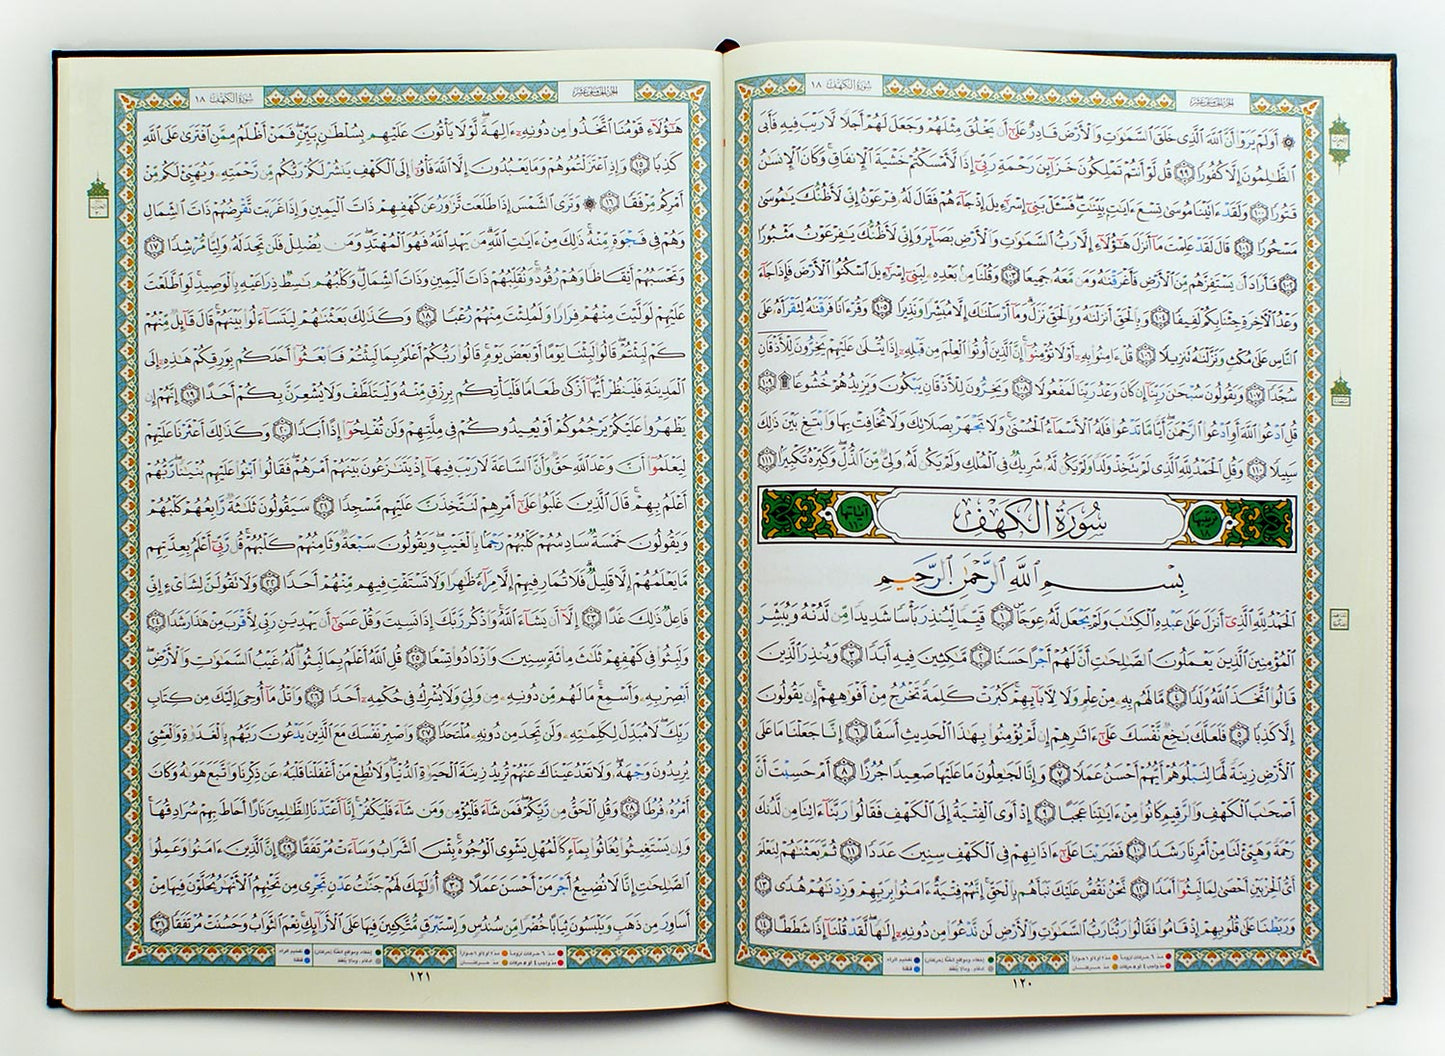 الجزء الخامس عشر
سُورَةُ الكَهْفِ ١٨
۞ أَوَلَمْ يَرَوْا أَنَّ ٱللَّهَ ٱلَّذِى خَلَقَ ٱلسَّمَٰوَٰتِ وَٱلْأَرْضَ قَادِرٌ عَلَىٰٓ أَن يَخْلُقَ مِثْلَهُمْ وَجَعَلَ لَهُمْ أَجَلًا لَّا رَيْبَ فِيهِ فَأَبَى
ٱلظَّٰلِمُونَ إِلَّا كُفُورًا ٩٩ قُل لَّوْ أَنتُمْ تَمْلِكُونَ خَزَآئِنَ رَحْمَةِ رَبِّىٓ إِذًا لَّأَمْسَكْتُمْ خَشْيَةَ ٱلْإِنفَاقِ ۚ وَكَانَ ٱلْإِنسَٰنُ
قَتُورًا ١٠٠ وَلَقَدْ ءَاتَيْنَا مُوسَىٰ تِسْعَ ءَايَٰتٍۭ بَيِّنَٰتٍ ۖ فَسْـَٔلْ بَنِىٓ إِسْرَٰٓءِيلَ إِذْ جَآءَهُمْ فَقَالَ لَهُۥ فِرْعَوْنُ إِنِّى لَأَظُنُّكَ يَٰمُوسَىٰ
مَسْحُورًا ١٠١ قَالَ لَقَدْ عَلِمْتَ مَآ أَنزَلَ هَٰٓؤُلَآءِ إِلَّا رَبُّ ٱلسَّمَٰوَٰتِ وَٱلْأَرْضِ بَصَآئِرَ وَإِنِّى لَأَظُنُّكَ يَٰفِرْعَوْنُ مَثْبُورًا
١٠٢ فَأَرَادَ أَن يَسْتَفِزَّهُم مِّنَ ٱلْأَرْضِ فَأَغْرَقْنَٰهُ وَمَن مَّعَهُۥ جَمِيعًا ١٠٣ وَقُلْنَا مِنۢ بَعْدِهِۦ لِبَنِىٓ إِسْرَٰٓءِيلَ ٱسْكُنُوا ٱلْأَرْضَ فَإِذَا جَآءَ
وَعْدُ ٱلْآخِرَةِ جِئْنَا بِكُمْ لَفِيفًا ١٠٤ وَبِٱلْحَقِّ أَنزَلْنَٰهُ وَبِٱلْحَقِّ نَزَلَ ۗ وَمَآ أَرْسَلْنَٰكَ إِلَّا مُبَشِّرًا وَنَذِيرًا ١٠٥ وَقُرْءَانًا فَرَقْنَٰهُ لِتَقْرَأَهُۥ عَلَى
ٱلنَّاسِ عَلَىٰ مُكْثٍ وَنَزَّلْنَٰهُ تَنزِيلًا ١٠٦ قُلْ ءَامِنُوا بِهِۦٓ أَوْ لَا تُؤْمِنُوٓا ۚ إِنَّ ٱلَّذِينَ أُوتُوا ٱلْعِلْمَ مِن قَبْلِهِۦٓ إِذَا يُتْلَىٰ عَلَيْهِمْ يَخِرُّونَ لِلْأَذْقَانِ
سُجَّدًا ١٠٧ وَيَقُولُونَ سُبْحَٰنَ رَبِّنَآ إِن كَانَ وَعْدُ رَبِّنَا لَمَفْعُولًا ١٠٨ وَيَخِرُّونَ لِلْأَذْقَانِ يَبْكُونَ وَيَزِيدُهُمْ خُشُوعًا ۩ ١٠٩
قُلِ ٱدْعُوا ٱللَّهَ أَوِ ٱدْعُوا ٱلرَّحْمَٰنَ ۖ أَيًّا مَّا تَدْعُوا فَلَهُ ٱلْأَسْمَآءُ ٱلْحُسْنَىٰ ۚ وَلَا تَجْهَرْ بِصَلَاتِكَ وَلَا تُخَافِتْ بِهَا وَٱبْتَغِ بَيْنَ ذَٰلِكَ
سَبِيلًا ١١٠ وَقُلِ ٱلْحَمْدُ لِلَّهِ ٱلَّذِى لَمْ يَتَّخِذْ وَلَدًا وَلَمْ يَكُن لَّهُۥ شَرِيكٌ فِى ٱلْمُلْكِ وَلَمْ يَكُن لَّهُۥ وَلِىٌّ مِّنَ ٱلذُّلِّ ۖ وَكَبِّرْهُ تَكْبِيرًۢا ١١١
ترتيبها ١٨ سُورَةُ الكَهْفِ آياتها
بِسْمِ ٱللَّهِ ٱلرَّحْمَٰنِ ٱلرَّحِيمِ
ٱلْحَمْدُ لِلَّهِ ٱلَّذِىٓ أَنزَلَ عَلَىٰ عَبْدِهِ ٱلْكِتَٰبَ وَلَمْ يَجْعَل لَّهُۥ عِوَجَا ۜ ١ قَيِّمًا لِّيُنذِرَ بَأْسًا شَدِيدًا مِّن لَّدُنْهُ وَيُبَشِّرَ
ٱلْمُؤْمِنِينَ ٱلَّذِينَ يَعْمَلُونَ ٱلصَّٰلِحَٰتِ أَنَّ لَهُمْ أَجْرًا حَسَنًا ٢ مَّٰكِثِينَ فِيهِ أَبَدًا ٣ وَيُنذِرَ ٱلَّذِينَ
قَالُوا ٱتَّخَذَ ٱللَّهُ وَلَدًا ٤ مَّا لَهُم بِهِۦ مِنْ عِلْمٍ وَلَا لِآبَآئِهِمْ ۚ كَبُرَتْ كَلِمَةً تَخْرُجُ مِنْ أَفْوَٰهِهِمْ ۚ إِن يَقُولُونَ
إِلَّا كَذِبًا ٥ فَلَعَلَّكَ بَٰخِعٌ نَّفْسَكَ عَلَىٰٓ ءَاثَٰرِهِمْ إِن لَّمْ يُؤْمِنُوا بِهَٰذَا ٱلْحَدِيثِ أَسَفًا ٦ إِنَّا جَعَلْنَا مَا عَلَى
ٱلْأَرْضِ زِينَةً لَّهَا لِنَبْلُوَهُمْ أَيُّهُمْ أَحْسَنُ عَمَلًا ٧ وَإِنَّا لَجَٰعِلُونَ مَا عَلَيْهَا صَعِيدًا جُرُزًا ٨ أَمْ حَسِبْتَ أَنَّ
أَصْحَٰبَ ٱلْكَهْفِ وَٱلرَّقِيمِ كَانُوا مِنْ ءَايَٰتِنَا عَجَبًا ٩ إِذْ أَوَى ٱلْفِتْيَةُ إِلَى ٱلْكَهْفِ فَقَالُوا رَبَّنَآ ءَاتِنَا مِن لَّدُنكَ
رَحْمَةً وَهَيِّئْ لَنَا مِنْ أَمْرِنَا رَشَدًا ١٠ فَضَرَبْنَا عَلَىٰٓ ءَاذَانِهِمْ فِى ٱلْكَهْفِ سِنِينَ عَدَدًا ١١ ثُمَّ بَعَثْنَٰهُمْ لِنَعْلَمَ
أَىُّ ٱلْحِزْبَيْنِ أَحْصَىٰ لِمَا لَبِثُوٓا أَمَدًا ١٢ نَّحْنُ نَقُصُّ عَلَيْكَ نَبَأَهُم بِٱلْحَقِّ ۚ إِنَّهُمْ فِتْيَةٌ ءَامَنُوا بِرَبِّهِمْ وَزِدْنَٰهُمْ هُدًى ١٣
وَرَبَطْنَا عَلَىٰ قُلُوبِهِمْ إِذْ قَامُوا فَقَالُوا رَبُّنَا رَبُّ ٱلسَّمَٰوَٰتِ وَٱلْأَرْضِ لَن نَّدْعُوَا مِن دُونِهِۦٓ إِلَٰهًا ۖ لَّقَدْ قُلْنَآ إِذًا شَطَطًا ١٤
١٢٠
الجزء الخامس عشر
سُورَةُ الكَهْفِ ١٨
هَٰٓؤُلَآءِ قَوْمُنَا ٱتَّخَذُوا مِن دُونِهِۦٓ ءَالِهَةً ۖ لَّوْلَا يَأْتُونَ عَلَيْهِم بِسُلْطَٰنٍۭ بَيِّنٍ ۖ فَمَنْ أَظْلَمُ مِمَّنِ ٱفْتَرَىٰ عَلَى ٱللَّهِ
كَذِبًا ١٥ وَإِذِ ٱعْتَزَلْتُمُوهُمْ وَمَا يَعْبُدُونَ إِلَّا ٱللَّهَ فَأْوُۥٓا إِلَى ٱلْكَهْفِ يَنشُرْ لَكُمْ رَبُّكُم مِّن رَّحْمَتِهِۦ وَيُهَيِّئْ لَكُم مِّنْ
أَمْرِكُم مِّرْفَقًا ١٦ ۞ وَتَرَى ٱلشَّمْسَ إِذَا طَلَعَت تَّزَٰوَرُ عَن كَهْفِهِمْ ذَاتَ ٱلْيَمِينِ وَإِذَا غَرَبَت تَّقْرِضُهُمْ ذَاتَ ٱلشِّمَالِ
وَهُمْ فِى فَجْوَةٍ مِّنْهُ ۚ ذَٰلِكَ مِنْ ءَايَٰتِ ٱللَّهِ ۗ مَن يَهْدِ ٱللَّهُ فَهُوَ ٱلْمُهْتَدِ ۖ وَمَن يُضْلِلْ فَلَن تَجِدَ لَهُۥ وَلِيًّا مُّرْشِدًا ١٧
وَتَحْسَبُهُمْ أَيْقَاظًا وَهُمْ رُقُودٌ ۚ وَنُقَلِّبُهُمْ ذَاتَ ٱلْيَمِينِ وَذَاتَ ٱلشِّمَالِ ۖ وَكَلْبُهُم بَٰسِطٌ ذِرَاعَيْهِ بِٱلْوَصِيدِ ۚ لَوِ ٱطَّلَعْتَ
عَلَيْهِمْ لَوَلَّيْتَ مِنْهُمْ فِرَارًا وَلَمُلِئْتَ مِنْهُمْ رُعْبًا ١٨ وَكَذَٰلِكَ بَعَثْنَٰهُمْ لِيَتَسَآءَلُوا بَيْنَهُمْ ۚ قَالَ قَآئِلٌ مِّنْهُمْ
كَمْ لَبِثْتُمْ ۖ قَالُوا لَبِثْنَا يَوْمًا أَوْ بَعْضَ يَوْمٍ ۚ قَالُوا رَبُّكُمْ أَعْلَمُ بِمَا لَبِثْتُمْ فَٱبْعَثُوٓا أَحَدَكُم بِوَرِقِكُمْ هَٰذِهِۦٓ إِلَى
ٱلْمَدِينَةِ فَلْيَنظُرْ أَيُّهَآ أَزْكَىٰ طَعَامًا فَلْيَأْتِكُم بِرِزْقٍ مِّنْهُ وَلْيَتَلَطَّفْ وَلَا يُشْعِرَنَّ بِكُمْ أَحَدًا ١٩ إِنَّهُمْ إِن
يَظْهَرُوا عَلَيْكُمْ يَرْجُمُوكُمْ أَوْ يُعِيدُوكُمْ فِى مِلَّتِهِمْ وَلَن تُفْلِحُوٓا إِذًا أَبَدًا ٢٠ وَكَذَٰلِكَ أَعْثَرْنَا عَلَيْهِمْ
لِيَعْلَمُوٓا أَنَّ وَعْدَ ٱللَّهِ حَقٌّ وَأَنَّ ٱلسَّاعَةَ لَا رَيْبَ فِيهَآ إِذْ يَتَنَٰزَعُونَ بَيْنَهُمْ أَمْرَهُمْ ۖ فَقَالُوا ٱبْنُوا عَلَيْهِم بُنْيَٰنًا ۖ رَّبُّهُمْ
أَعْلَمُ بِهِمْ ۚ قَالَ ٱلَّذِينَ غَلَبُوا عَلَىٰٓ أَمْرِهِمْ لَنَتَّخِذَنَّ عَلَيْهِم مَّسْجِدًا ٢١ سَيَقُولُونَ ثَلَٰثَةٌ رَّابِعُهُمْ كَلْبُهُمْ
وَيَقُولُونَ خَمْسَةٌ سَادِسُهُمْ كَلْبُهُمْ رَجْمًۢا بِٱلْغَيْبِ ۖ وَيَقُولُونَ سَبْعَةٌ وَثَامِنُهُمْ كَلْبُهُمْ ۚ قُل رَّبِّىٓ أَعْلَمُ بِعِدَّتِهِم
مَّا يَعْلَمُهُمْ إِلَّا قَلِيلٌ ۗ فَلَا تُمَارِ فِيهِمْ إِلَّا مِرَآءً ظَٰهِرًا وَلَا تَسْتَفْتِ فِيهِم مِّنْهُمْ أَحَدًا ٢٢ وَلَا تَقُولَنَّ لِشَا۟ىْءٍ إِنِّى
فَاعِلٌ ذَٰلِكَ غَدًا ٢٣ إِلَّآ أَن يَشَآءَ ٱللَّهُ ۚ وَٱذْكُر رَّبَّكَ إِذَا نَسِيتَ وَقُلْ عَسَىٰٓ أَن يَهْدِيَنِ رَبِّى لِأَقْرَبَ مِنْ هَٰذَا رَشَدًا ٢٤
وَلَبِثُوا فِى كَهْفِهِمْ ثَلَٰثَ مِا۟ئَةٍ سِنِينَ وَٱزْدَادُوا تِسْعًا ٢٥ قُلِ ٱللَّهُ أَعْلَمُ بِمَا لَبِثُوا ۖ لَهُۥ غَيْبُ ٱلسَّمَٰوَٰتِ وَٱلْأَرْضِ ۖ
أَبْصِرْ بِهِۦ وَأَسْمِعْ ۚ مَا لَهُم مِّن دُونِهِۦ مِن وَلِىٍّ وَلَا يُشْرِكُ فِى حُكْمِهِۦٓ أَحَدًا ٢٦ وَٱتْلُ مَآ أُوحِىَ إِلَيْكَ مِن كِتَابِ
رَبِّكَ ۖ لَا مُبَدِّلَ لِكَلِمَٰتِهِۦ وَلَن تَجِدَ مِن دُونِهِۦ مُلْتَحَدًا ٢٧ وَٱصْبِرْ نَفْسَكَ مَعَ ٱلَّذِينَ يَدْعُونَ رَبَّهُم بِٱلْغَدَوٰةِ وَٱلْعَشِىِّ
يُرِيدُونَ وَجْهَهُۥ ۖ وَلَا تَعْدُ عَيْنَاكَ عَنْهُمْ تُرِيدُ زِينَةَ ٱلْحَيَوٰةِ ٱلدُّنْيَا ۖ وَلَا تُطِعْ مَنْ أَغْفَلْنَا قَلْبَهُۥ عَن ذِكْرِنَا وَٱتَّبَعَ هَوَىٰهُ وَكَانَ
أَمْرُهُۥ فُرُطًا ٢٨ وَقُلِ ٱلْحَقُّ مِن رَّبِّكُمْ ۖ فَمَن شَآءَ فَلْيُؤْمِن وَمَن شَآءَ فَلْيَكْفُرْ ۚ إِنَّآ أَعْتَدْنَا لِلظَّٰلِمِينَ نَارًا أَحَاطَ بِهِمْ سُرَادِقُهَا ۚ
وَإِن يَسْتَغِيثُوا يُغَاثُوا بِمَآءٍ كَٱلْمُهْلِ يَشْوِى ٱلْوُجُوهَ ۚ بِئْسَ ٱلشَّرَابُ وَسَآءَتْ مُرْتَفَقًا ٢٩ إِنَّ ٱلَّذِينَ ءَامَنُوا وَعَمِلُوا
ٱلصَّٰلِحَٰتِ إِنَّا لَا نُضِيعُ أَجْرَ مَنْ أَحْسَنَ عَمَلًا ٣٠ أُولَٰٓئِكَ لَهُمْ جَنَّٰتُ عَدْنٍ تَجْرِى مِن تَحْتِهِمُ ٱلْأَنْهَٰرُ يُحَلَّوْنَ فِيهَا مِنْ
أَسَاوِرَ مِن ذَهَبٍ وَيَلْبَسُونَ ثِيَابًا خُضْرًا مِّن سُندُسٍ وَإِسْتَبْرَقٍ مُّتَّكِـِٔينَ فِيهَا عَلَى ٱلْأَرَآئِكِ ۚ نِعْمَ ٱلثَّوَابُ وَحَسُنَتْ مُرْتَفَقًا ٣١
١٢١